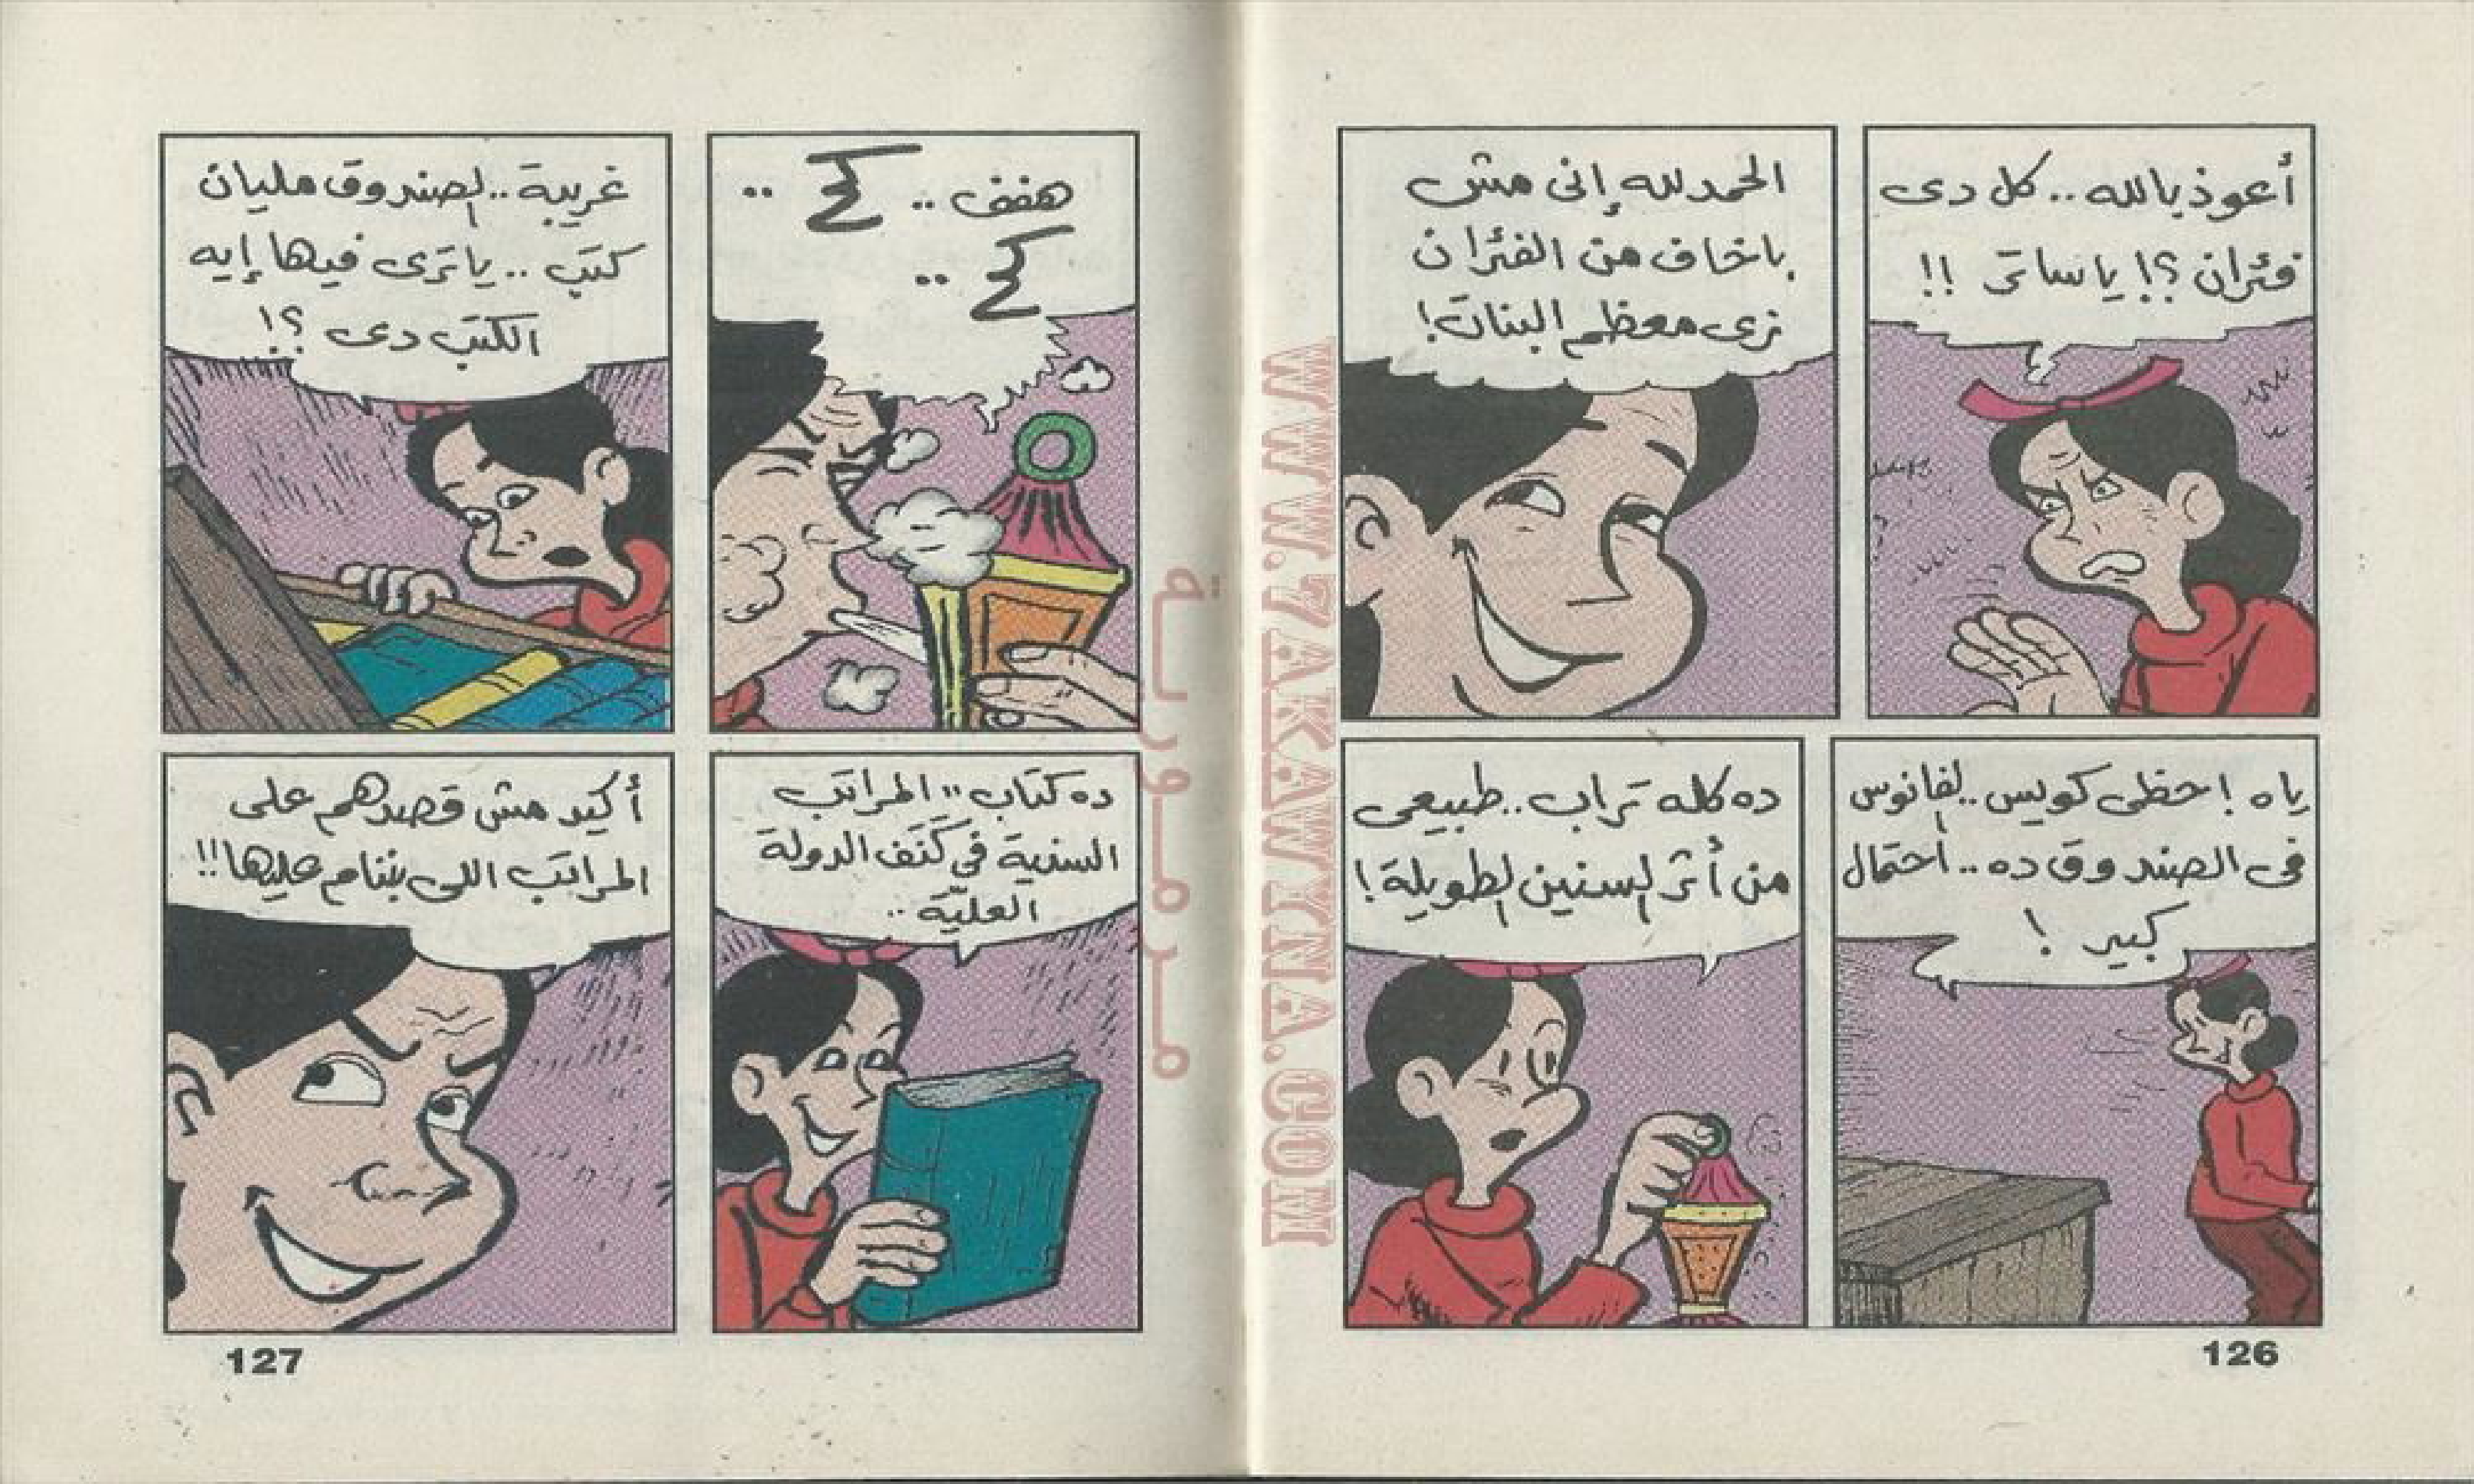 أعوذ بالله.. كل دى
فئران؟! يا ساتر!!
الحمد لله إنى مش
باخاف من الفئران
زى معظم البنات!
ياه! حظى كويس.. الفانوس
فى الصندوق ده.. احتمال
كبير!
ده كله تراب.. طبيعى
من أثر السنين الطويلة!
126
هففف.. كح..
كح..
غريبة.. الصندوق مليان
كتب.. يا ترى فيها إيه
الكتب دى؟!
ده كتاب "المراتب
السنية فى كَنَف الدولة
العليّة..
أكيد مش قصدهم على
المراتب اللى بننام عليها!!
127
WWW.7AKAWYNA.COM
مرمورية